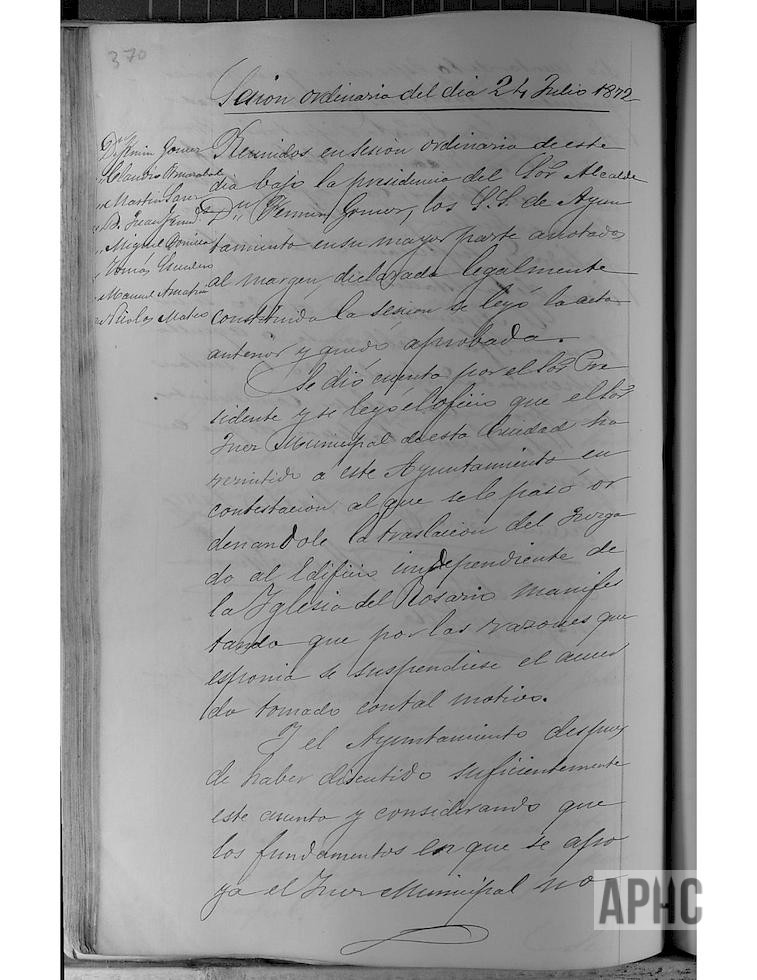 370
Sesion ordinaria del dia 24 Julio 1872
Dn Fermin Gomez
" Claudio
" Martin Sanz
" B. Juan Fernz
" Miguel
" Tomás Escudero
" Manuel
" Nicolas Mateo
Reunidos en sesion ordinaria de este
dia bajo la presidencia del Sor Alcalde
Dn Fermin Gomez, los S.S. de Ayun
tamiento en su mayor parte anotados
al margen, declarada legalmente
constituida la sesion se leyó la acta
anterior y quedó aprobada.
Se dió cuenta por el Sor Pre
sidente y se leyó el oficio que el Sor
Juez Municipal de esta Ciudad ha
remitido a este Ayuntamiento en
contestacion al que se le pasó or
denandole la traslacion del Juzga
do al Edificio independiente de
la Iglesia del Rosario manifes
tando que por las razones que
esponia se suspendiese el acuer
do tomado con tal motivo.
Y el Ayuntamiento despues
de haber discutido suficientemente
este asunto y considerando que
los fundamentos en que se apo
ya el Juez Municipal no
APHC